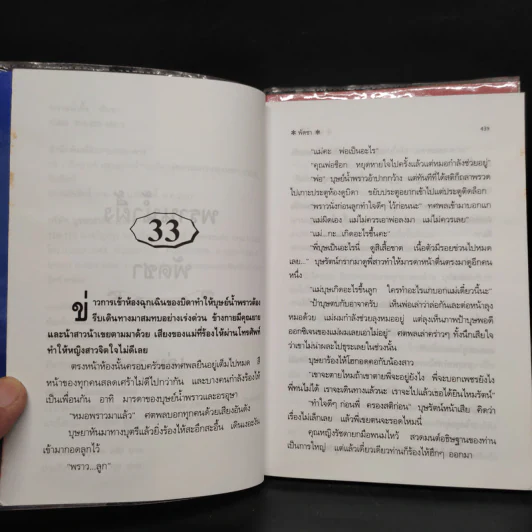 33
ข่าวการเข้าห้องฉุกเฉินของบิดาทำให้บุษย์น้ำพราวต้อง
รีบเดินทางมาสมทบอย่างเร่งด่วน ข้างกายมีคุณยาย
และน้าสาวน้าเขยตามมาด้วย เสียงของแม่ที่ร้องไห้ผ่านโทรศัพท์
ทำให้หญิงสาวจิตใจไม่ดีเลย
ตรงหน้าห้องนั้นครอบครัวของทศพลยืนอยู่เต็มไปหมด สี
หน้าของทุกคนสลดเศร้าไม่ดีไปกว่ากัน และบางคนกำลังร้องไห้
เป็นเพื่อนกัน อาทิ มารดาของบุษย์น้ำพราวและอรอุษา
"หมอพราวมาแล้ว" ศตพลบอกทุกคนด้วยเสียงอันดัง
บุษยาหันมาทางบุตรีแล้วยิ่งร้องไห้สะอึกสะอื้น เดินเงอะงัน
เข้ามากอดลูกไว้
"พราว...ลูก"
❋ พัดชา ❋ 439
"แม่คะ พ่อเป็นอะไร"
"คุณพ่อช็อก หยุดหายใจไปครั้งแล้วแต่หมอกำลังช่วยอยู่"
"พ่อ" บุษย์น้ำพราวอ้าปากกว้าง แต่ทันทีที่ได้สติก็ถลาพรวด
ไปเกาะประตูห้องดูบิดา ขยับประตูอยากเข้าไปแต่ประตูติดล็อก
"พราวนั่งก่อนลูกทำใจดีๆ ไว้ก่อนนะ" ทศพลเข้ามาบอกแก
"แม่ผิดเอง แม่ไม่ควรเอาพ่อลงมา แม่ไม่ควรเลย"
"แม่...กะ...เกิดอะไรขึ้นคะ"
"พี่บุษเป็นอะไรนี่ ดูสีเสื้อขาด เนื้อตัวมีรอยช่วนไปหมด
เลย..." บุษรัตน์กรากมาดูพี่สาวทำให้มารดาหน้าตื่นตรงมาดูอีกคน
หนึ่ง
"แม่บุษเกิดอะไรขึ้นลูก ใครทำอะไรแกบอกแม่เดี๋ยวนี้นะ"
"ป้าบุษตบกับอาจาครับ เห็นพ่อเล่าว่าล่อกันและต่อหน้าลุง
หมอด้วย แม่ผมกำลังช่วยลุงหมออยู่ แต่ไปเห็นภาพป้าบุษพอดี
ออกซิเจนของแม่ผมเลยเอาไม่อยู่" ศตพลเล่าคร่าวๆ ทั้งนึกเสียใจ
ว่าเขาไม่น่าผละไปธุระเลยในช่วงนั้น
บุษยาร้องไห้โฮกอดคอกับน้องสาว
"เขาจะตายไหมถ้าเขาตายพี่จะอยู่ยังไง พี่จะบอกเพชรยังไง
พี่ทนไม่ได้ เราจะเดินทางแล้วนะ เราจะไปแล้วเธอได้ยินไหมรัตน์"
"ทำใจดีๆ ก่อนพี่ ครองสติก่อน" บุษรัตน์หน้าเสีย คิดว่า
เรื่องไม่เล็กเลย แล้วพี่เขยตนจะรอดไหมนี่
คุณหญิงรัชดายกมือพนมไหว้ สวดมนต์อธิษฐานของท่าน
เป็นการใหญ่ แต่แล้วเดี๋ยวเดียวท่านก็ร้องไห้ฮึกๆ ออกมา